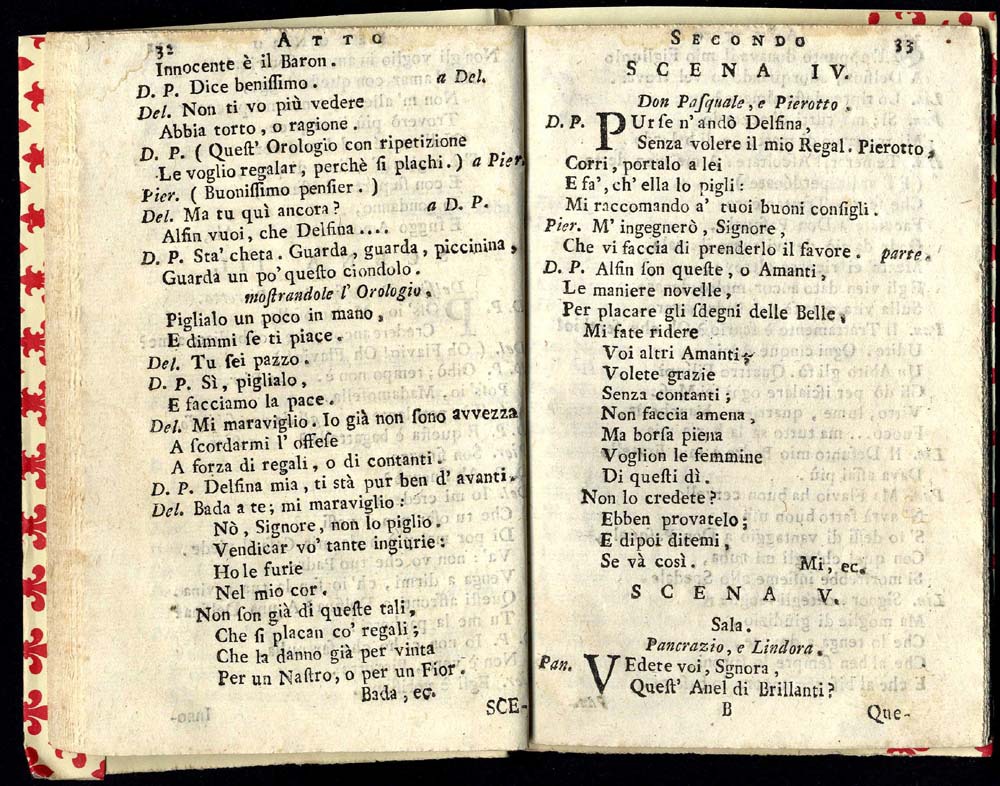 32
ATTO
Innocente è il Baron.
D. P. Dice beniſſimo. a Del.
Del. Non ti vo più vedere
Abbia torto, o ragione.
D. P. ( Queſt' Orologio con ripetizione
Le voglio regalar, perchè ſi plachi. ) a Pier.
Pier. ( Buoniſſimo penſier. )
Del. Ma tu quì ancora? a D. P.
Alfin vuoi, che Delfina ....
D. P. Sta' cheta. Guarda, guarda, piccinina,
Guarda un po' queſto ciondolo.
moſtrandole l' Orologio.
Piglialo un poco in mano,
E dimmi ſe ti piace.
Del. Tu ſei pazzo.
D. P. Sì, piglialo,
E facciamo la pace.
Del. Mi maraviglio. Io già non ſono avvezza
A ſcordarmi l' offeſe
A forza di regali, o di contanti.
D. P. Delfina mia, ti stà pur ben d' avanti.
Del. Bada a te; mi maraviglio:
Nò, Signore, non lo piglio.
Vendicar vo' tante ingiurie:
Ho le furie
Nel mio cor.
Non ſon già di queſte tali,
Che ſi placan co' regali;
Che la danno già per vinta
Per un Naſtro, o per un Fior.
Bada, ec.
SCE-
SECONDO
33
SCENA IV.
Don Paſquale, e Pierotto.
D. P. PUrſe n' andò Delfina,
Senza volere il mio Regal. Pierotto,
Corri, portalo a lei
E fa', ch' ella lo pigli:
Mi raccomando a' tuoi buoni conſigli.
Pier. M' ingegnerò, Signore,
Che vi faccia di prenderlo il favore. parte.
D. P. Alfin ſon queſte, o Amanti,
Le maniere novelle,
Per placare gli ſdegni delle Belle.
Mi fate ridere
Voi altri Amanti;
Volete grazie
Senza contanti;
Non faccia amena,
Ma borſa piena
Voglion le femmine
Di queſti dì.
Non lo credete?
Ebben provatelo;
E dipoi ditemi,
Se và così. Mi, ec.
SCENA V.
Sala.
Pancrazio, e Lindora.
Pan. VEdete voi, Sgnora,
Queſt' Anel di Brillanti?
B
Que-